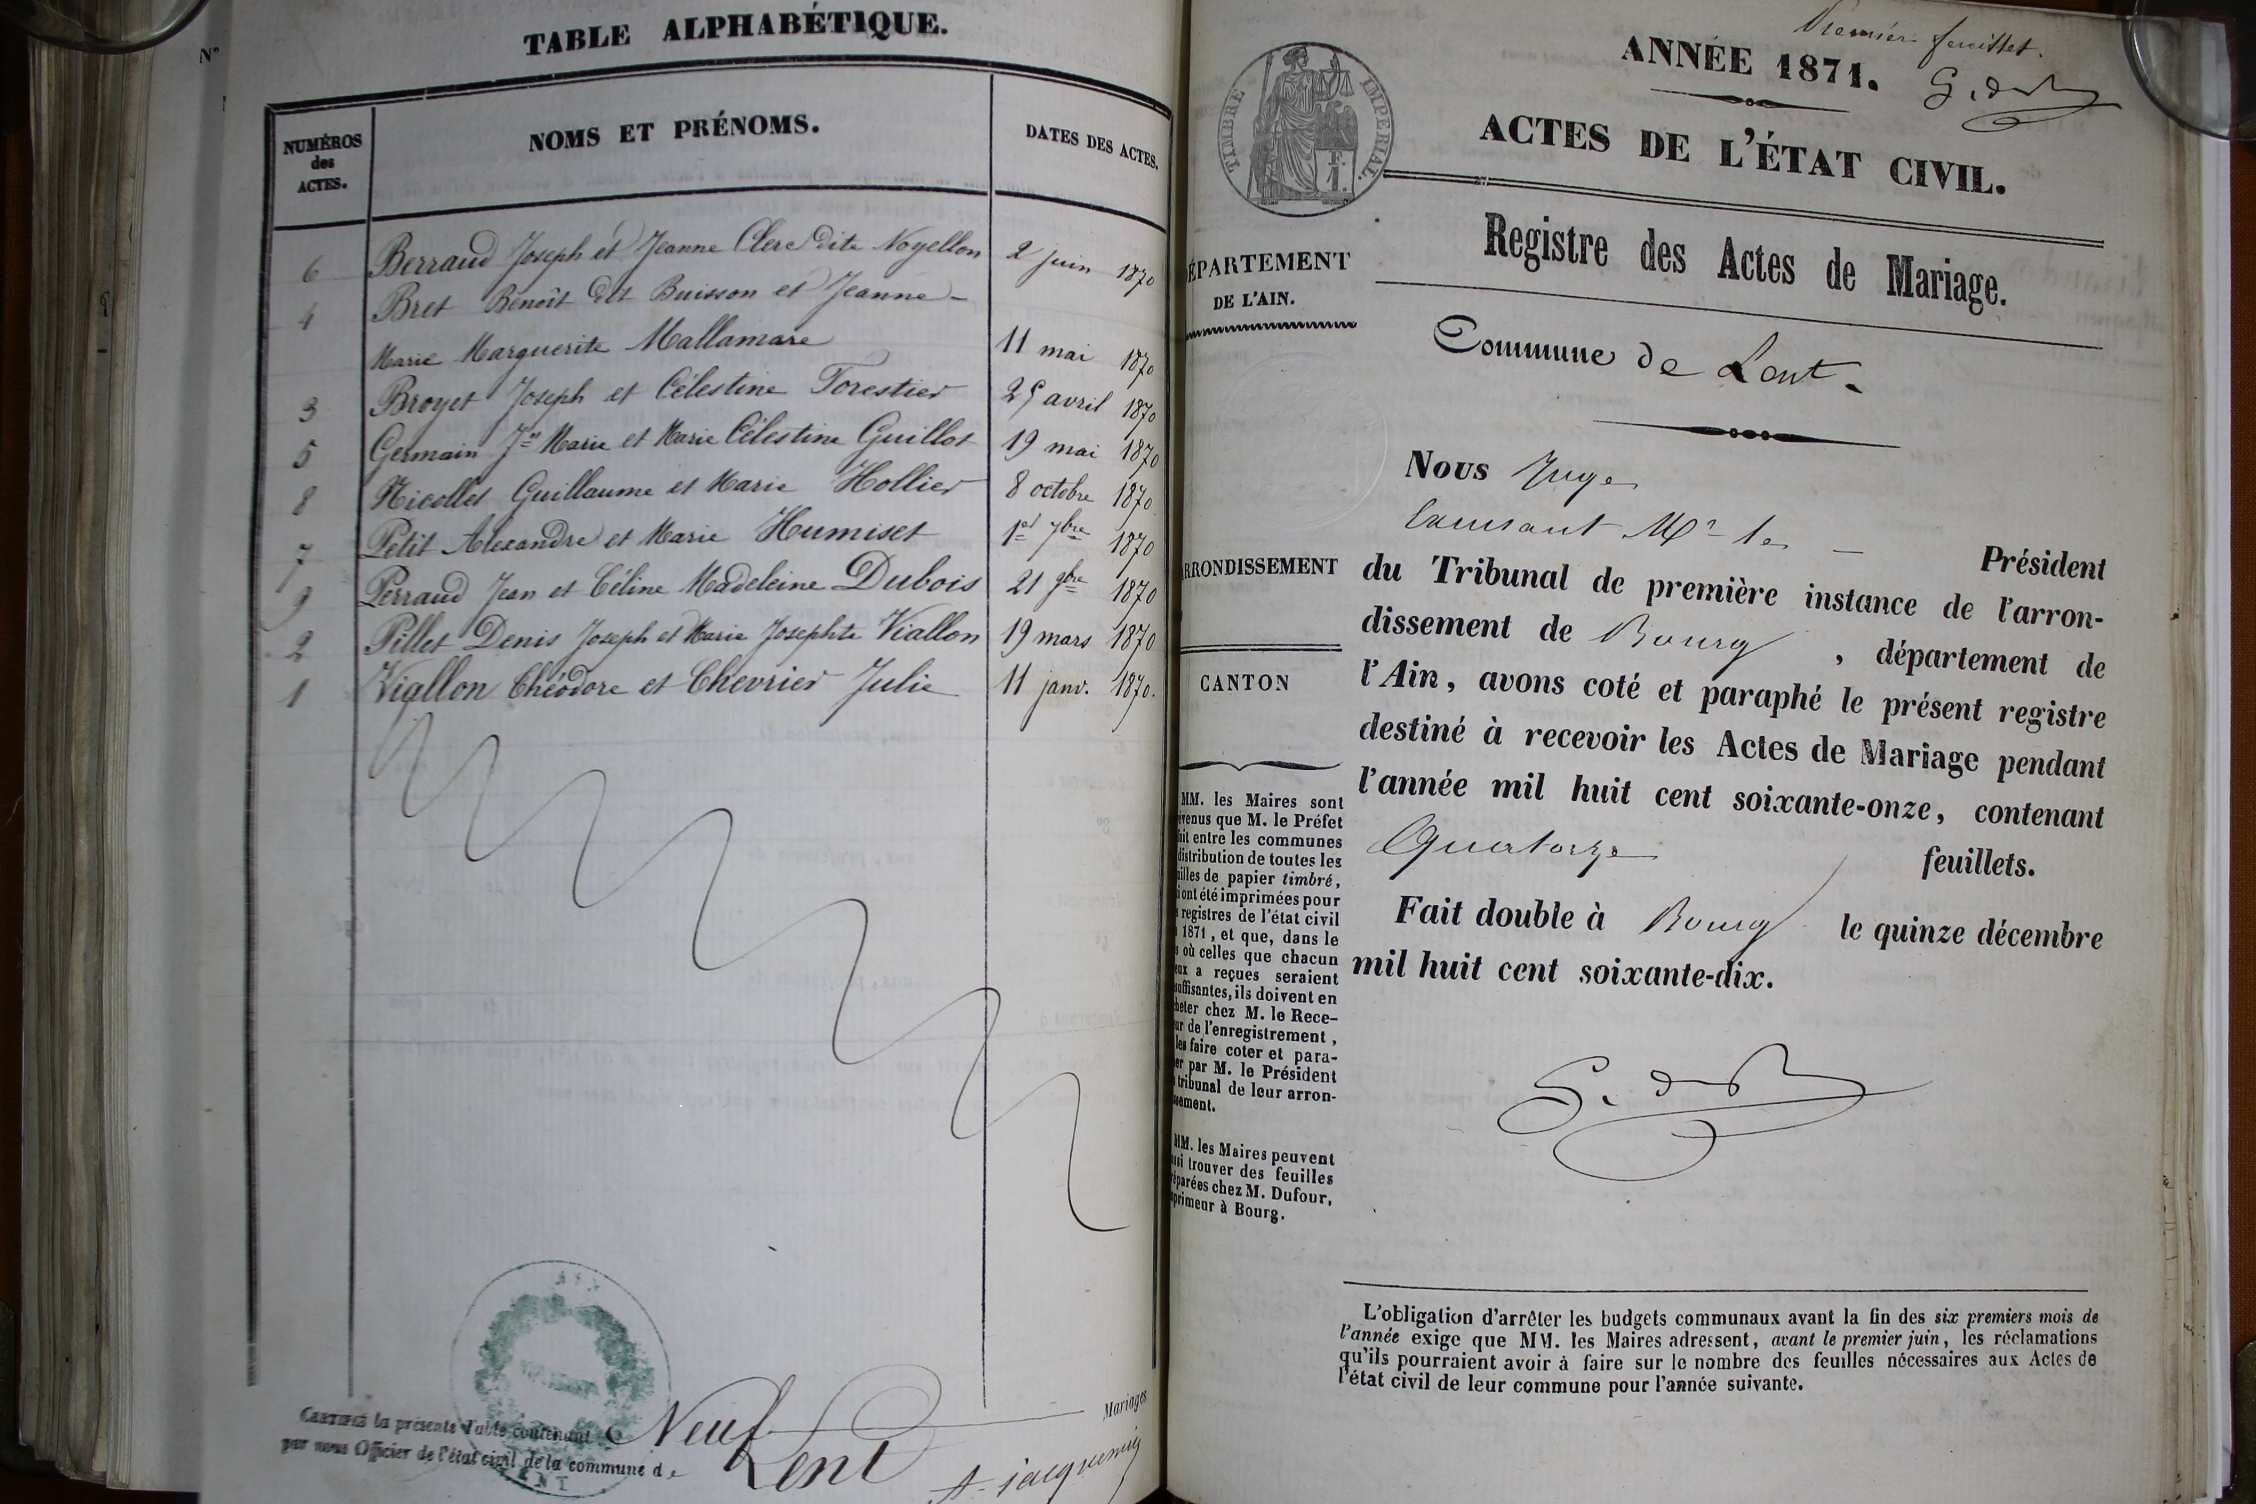 TABLE ALPHABÉTIQUE.
N°
NUMÉROS
des
ACTES.
NOMS ET PRÉNOMS.
DATES DES ACTES.
6 Berraud Joseph et Jeanne Clerc dite Noyellon 2 juin 1870
4 Bret Benoît dit Buisson et Jeanne-
Marie Marguerite Mallamare 11 mai 1870
3 Broyet Joseph et Célestine Forestier 25 avril 1870
5 Germain Jn Marie et Marie Célestine Guillot 19 mai 1870
8 Nicollet Guillaume et Marie Hollier 8 octobre 1870
7 Petit Alexandre et Marie Humiset 1er 7bre 1870
9 Perraud Jean et Céline Madeleine Dubois 21 9bre 1870
2 Pillet Denis Joseph et Marie Josephte Viallon 19 mars 1870
1 Viallon Théodore et Chevrier Julie 11 janv. 1870.
CERTIFIÉ la présente Table contenant Neuf Mariages
par nous Officier de l'état civil de la commune de Lent
A. jacquemin
Premier feuillet.
ANNÉE 1871.
TIMBRE IMPERIAL.
ACTES DE L'ÉTAT CIVIL.
Registre des Actes de Mariage.
ÉPARTEMENT
DE L'AIN.
Commune de Lent.
Nous Juge
Mr le Président
RRONDISSEMENT
du Tribunal de première instance de l'arron-
dissement de Bourg, département de
CANTON
l'Ain, avons coté et paraphé le présent registre
destiné à recevoir les Actes de Mariage pendant
l'année mil huit cent soixante-onze, contenant
Quatorze feuillets.
Fait double à Bourg le quinze décembre
mil huit cent soixante-dix.
MM. les Maires sont
évenus que M. le Préfet
ait entre les communes
distribution de toutes les
illes de papier timbré,
i ont été imprimées pour
s registres de l'état civil
1871, et que, dans le
s où celles que chacun
eux a reçues seraient
suffisantes, ils doivent en
heter chez M. le Rece-
ur de l'enregistrement,
les faire coter et para-
er par M. le Président
tribunal de leur arron-
ssement.
MM. les Maires peuvent
ssi trouver des feuilles
éparées chez M. Dufour,
primeur à Bourg.
L'obligation d'arrêter les budgets communaux avant la fin des six premiers mois de
l'année exige que MM. les Maires adressent, avant le premier juin, les réclamations
qu'ils pourraient avoir à faire sur le nombre des feuilles nécessaires aux Actes de
l'état civil de leur commune pour l'année suivante.